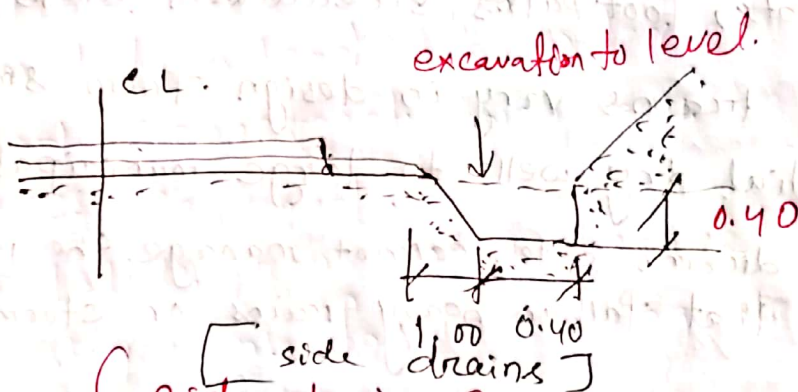 excavation to level.
CL.
0.40
1.00 0.40
[side drains]